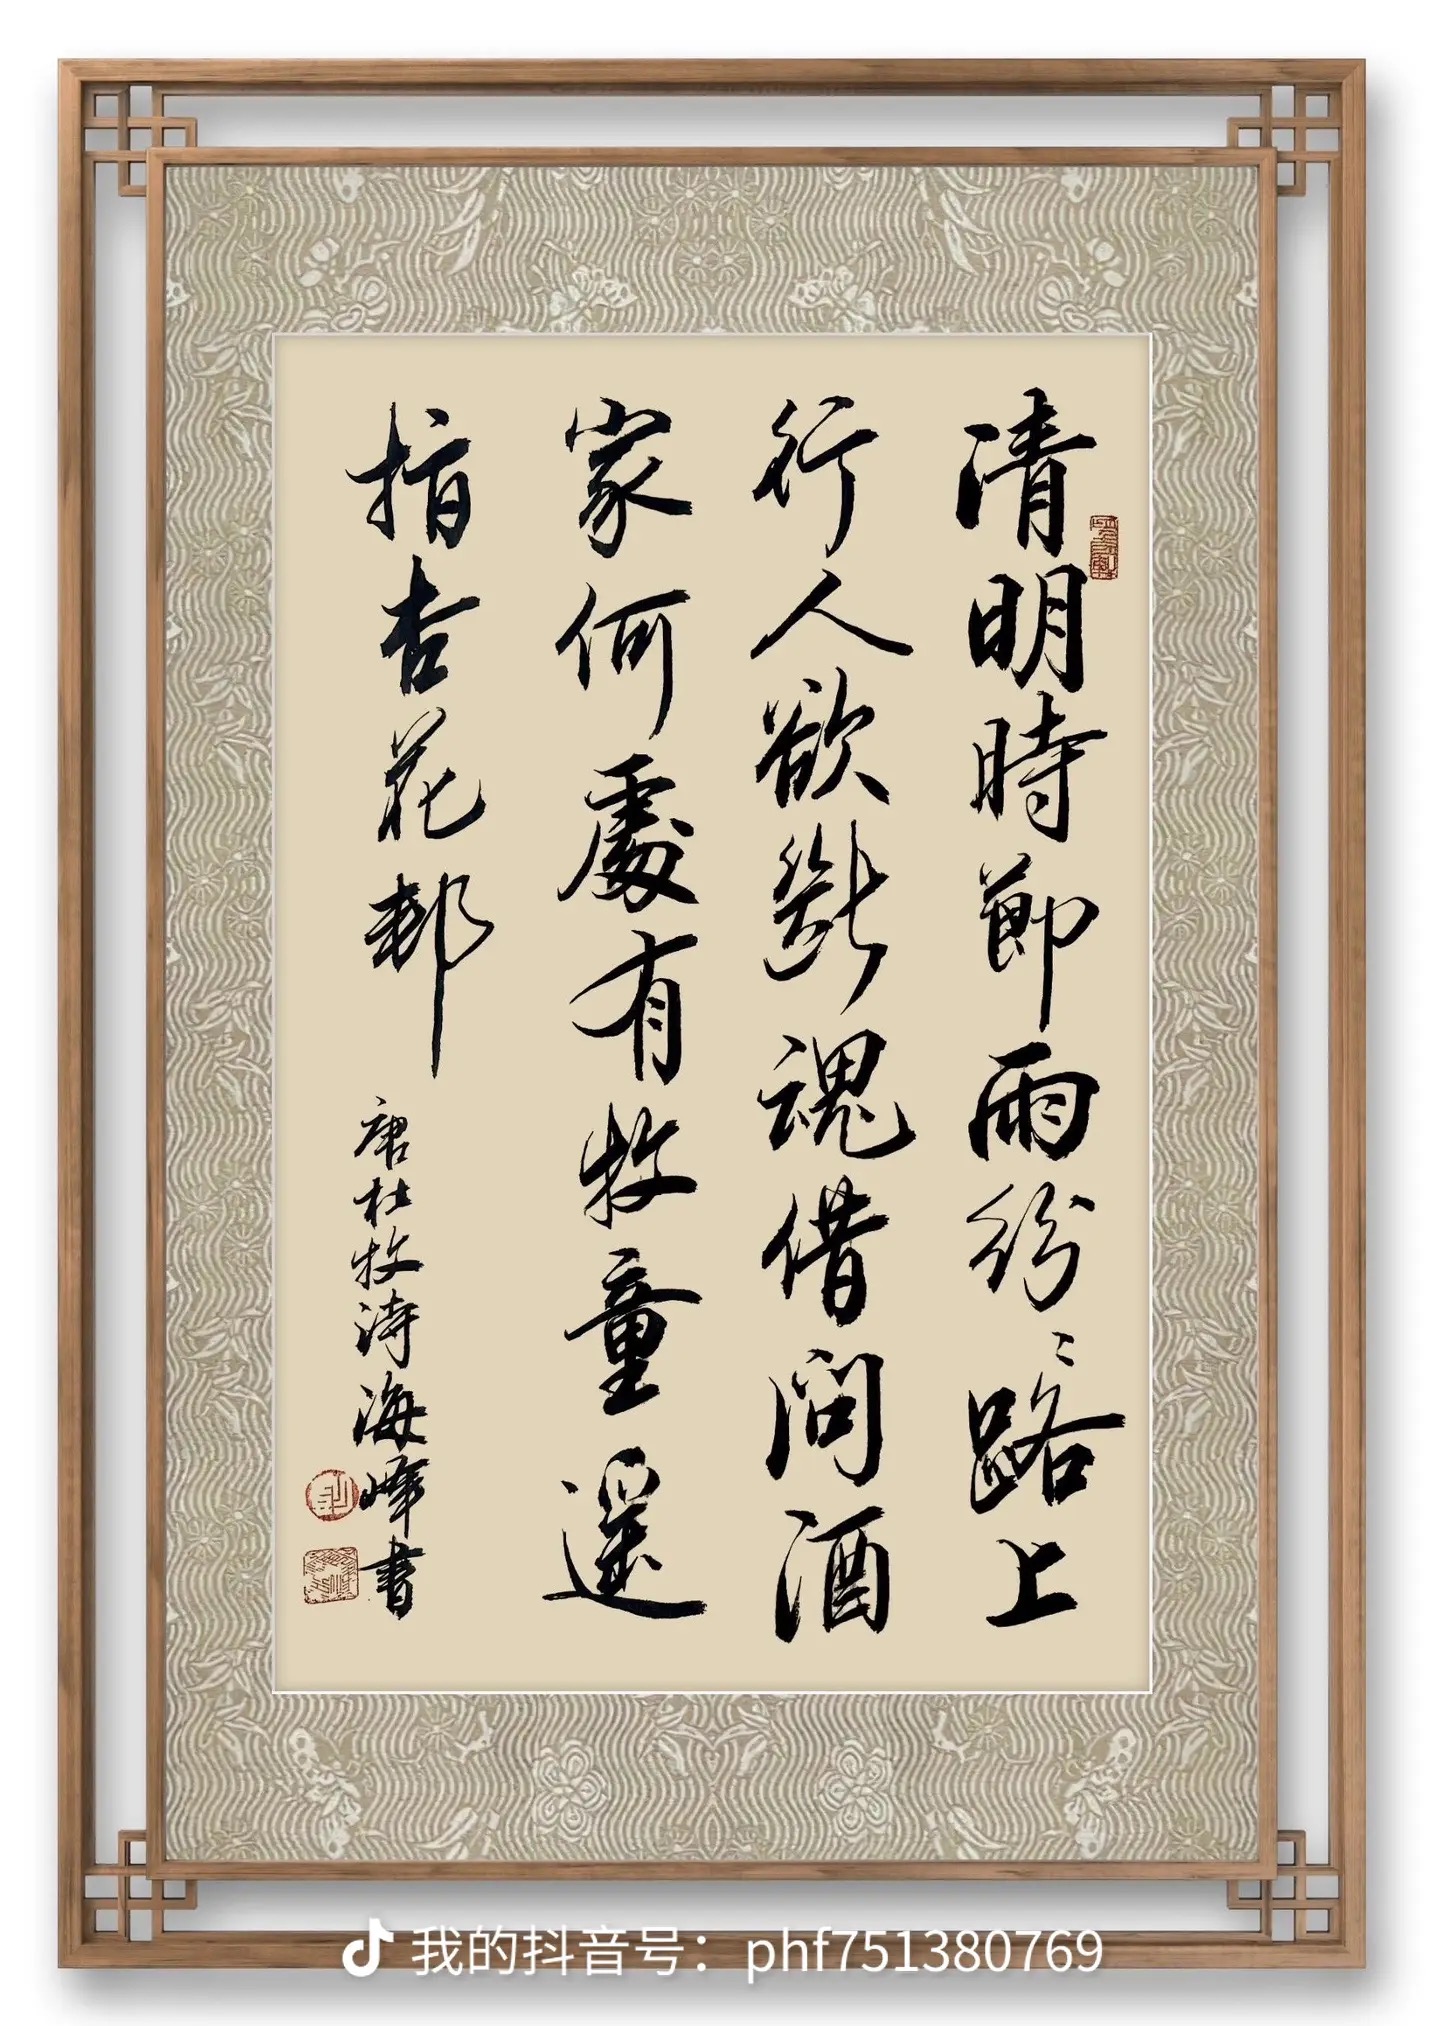 清明時節雨紛〻路上
行人欲斷魂借問酒
家何處有牧童遥
指杏花邨
唐杜牧詩海峰書
我的抖音号：phf751380769